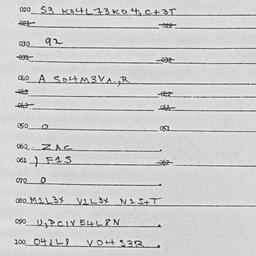 020 S3 K04L73K04, C+3T
021 022
030 92
031 032
040 A S04M3VA., R
050 0 051
060 ZAC
061 ) F1S 062
070 0
080 M1L3X V1L3X N1S+T
090 U, PC1V E4L8N
100 04JL8 V04S3R